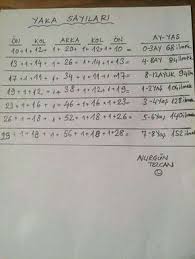 YAKA SAYILARI
ÖN KOL ARKA KOL ÖN AY-YAŞ
10+1+12+1+20+1+12+1+10= 0-3AY 68 ilmek
13+1+14+1+26+1+14+1+13= 4-8AY 84 ilmek
17+1+11+1+34+1+11+1+17= 8-12AYLIK 94
19+1+12+1+38+1+12+1+19= 1-2 YAŞ 104 ilmek
23+1+16+1+46+1+16+1+23= 3-4 YAŞ 128 ilmek
26+1+18+1+52+1+18+1+26= 5-6 YAŞ 140 ilmek
1+18+1+56+1+18+1+28= 7-8 YAŞ 152 ilmek
NURGÜN
TEZCAN